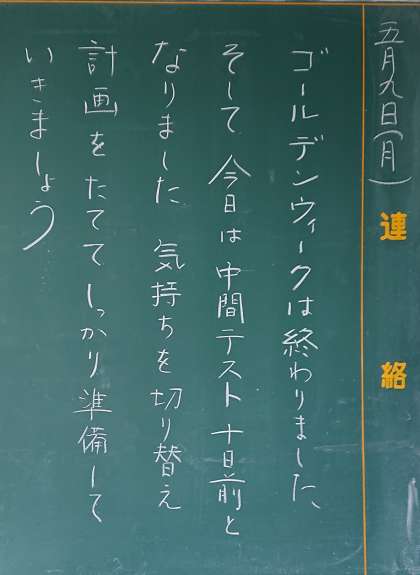 五月九日(月)
連絡
ゴールデンウィークは終わりました、
そして、今日は中間テスト十日前と
なりました 気持ちを切り替え
計画をたててしっかり準備して
いきましょう